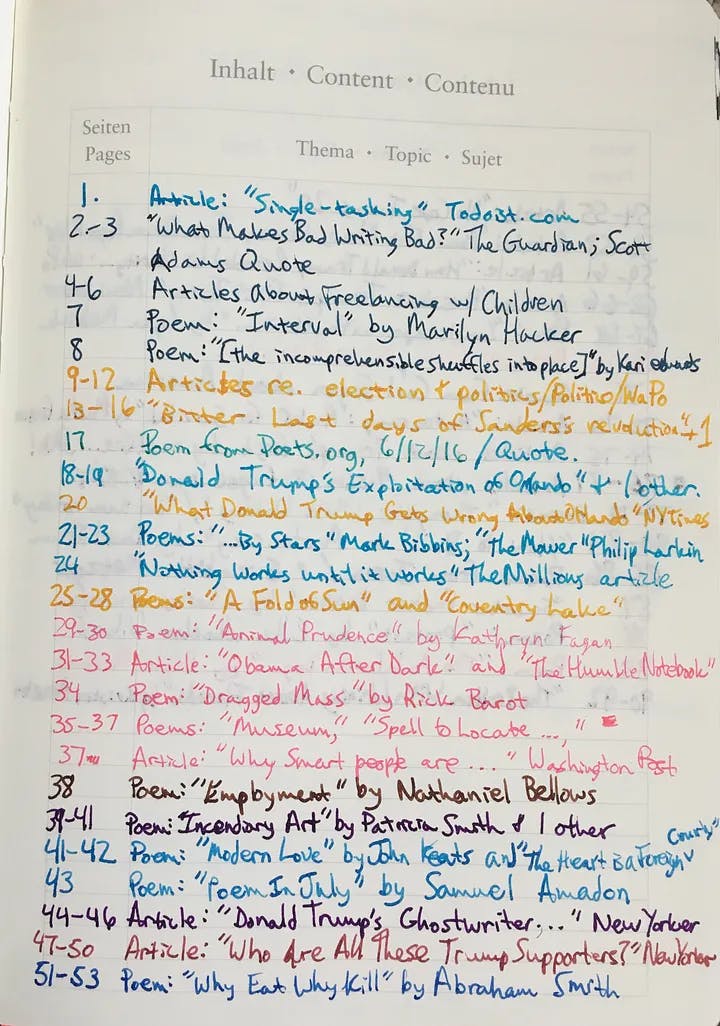 Inhalt • Content • Contenu
Seiten
Pages
Thema • Topic • Sujet
1. Article: "Single-tasking". Todoist.com
2.-3 "What Makes Bad Writing Bad?" The Guardian; Scott
Adams Quote
4-6 Articles About Freelancing w/ Children
7 Poem: "Interval" by Marilyn Hacker
8 Poem: "[the incomprehensible shuffles into place]" by Kari edwards
9-12 Articles re. election & politics/Politico/WaPo
13-16 "Bitter Last days of Sanders's revolution" + 1
17 Poem from Poets.org, 6/12/16 / Quote.
18-19 "Donald Trump's Exploitation of Orlando" & 1 other.
20 "What Donald Trump Gets Wrong About Orlando" NYTimes
21-23 Poems: "...By Stars" Mark Bibbins; "The Mower" Philip Larkin
24 "Nothing Works until it works" The Millions article
25-28 Poems: "A Fold of Sun" and "Coventry Lake"
29-30 Poem: "Animal Prudence" by Kathryn Fagan
31-33 Article: "Obama After Dark" and "The Humble Notebook"
34 Poem: "Dragged Mass" by Rick Barot
35-37 Poems: "Museum," "Spell to Locate ...,"
37 Article: "Why Smart people are ..." Washington Post
38 Poem: "Employment" by Nathaniel Bellows
39-41 Poem: "Incendiary Art" by Patricia Smith & 1 other
41-42 Poem: "Modern Love" by John Keats and "The Heart is a Foreign Country"
43 Poem: "Poem In July" by Samuel Amadon
44-46 Article: "Donald Trump's Ghostwriter..." New Yorker
47-50 Article: "Who Are All These Trump Supporters?" New Yorker
51-53 Poem: "Why Eat Why Kill" by Abraham Smith